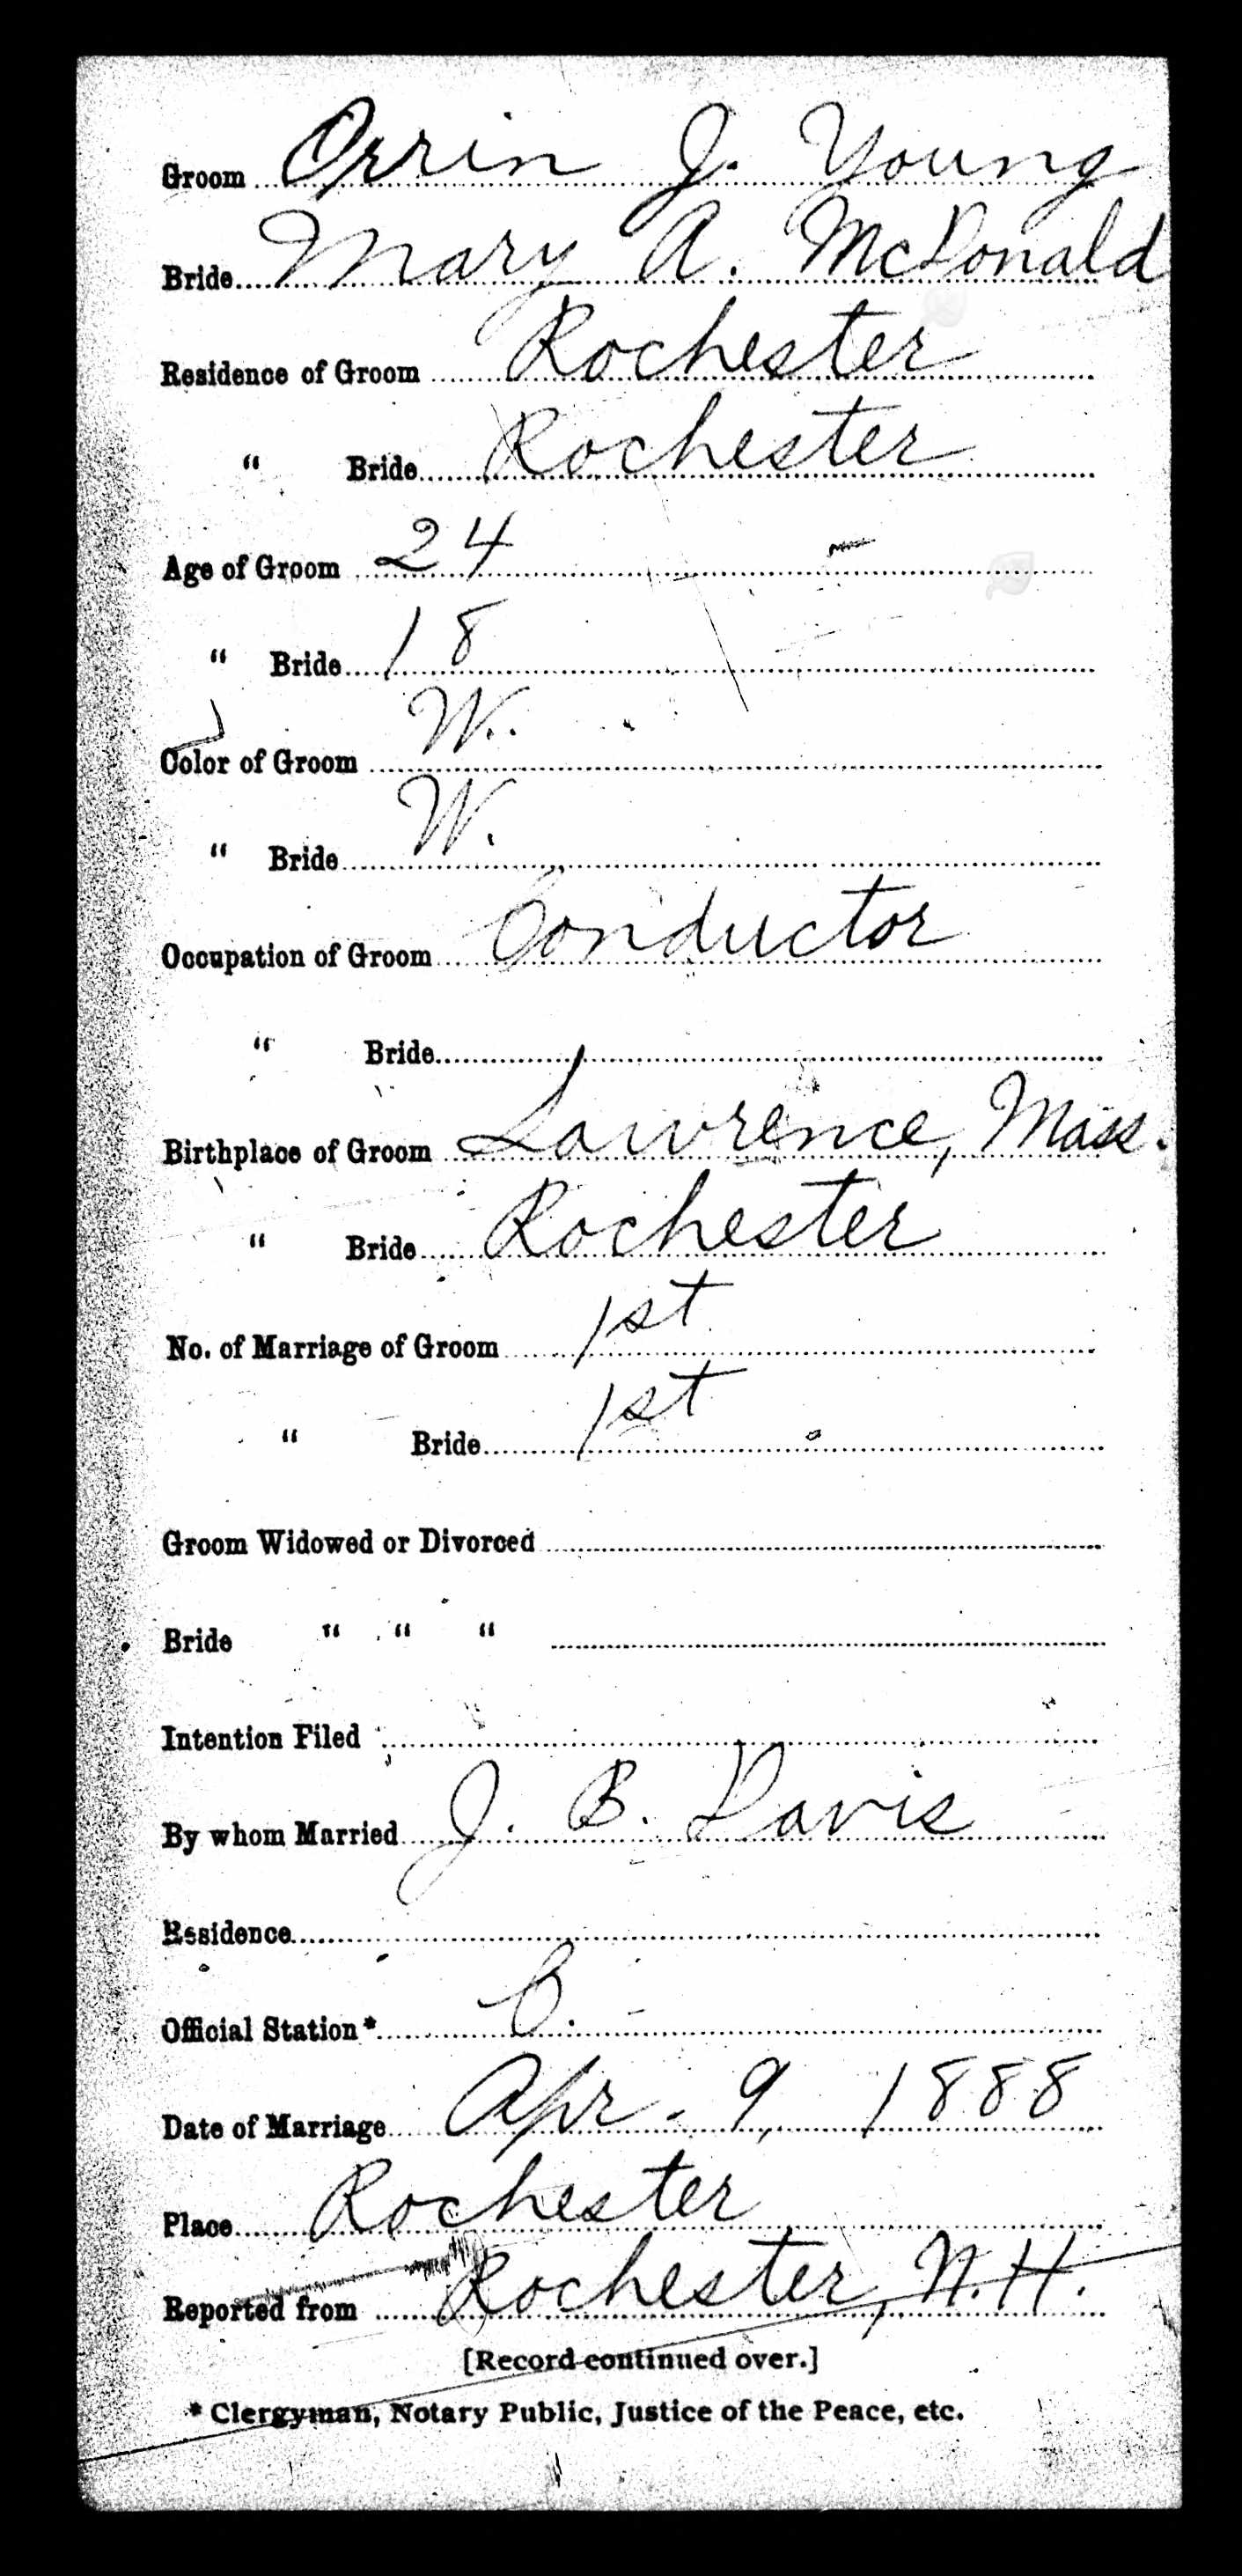 Groom Orrin J. Young
Bride Mary A. McDonald
Residence of Groom Rochester
" Bride Rochester
Age of Groom 24
" Bride 18
Color of Groom W.
" Bride W.
Occupation of Groom Conductor
" Bride
Birthplace of Groom Lawrence, Mass.
" Bride Rochester
No. of Marriage of Groom 1st
" Bride 1st
Groom Widowed or Divorced
Bride " " "
Intention Filed
By whom Married J. B. Davis
Residence
Official Station* C.
Date of Marriage Apr. 9, 1888
Place Rochester
Reported from Rochester, N.H.
[Record continued over.]
* Clergyman, Notary Public, Justice of the Peace, etc.